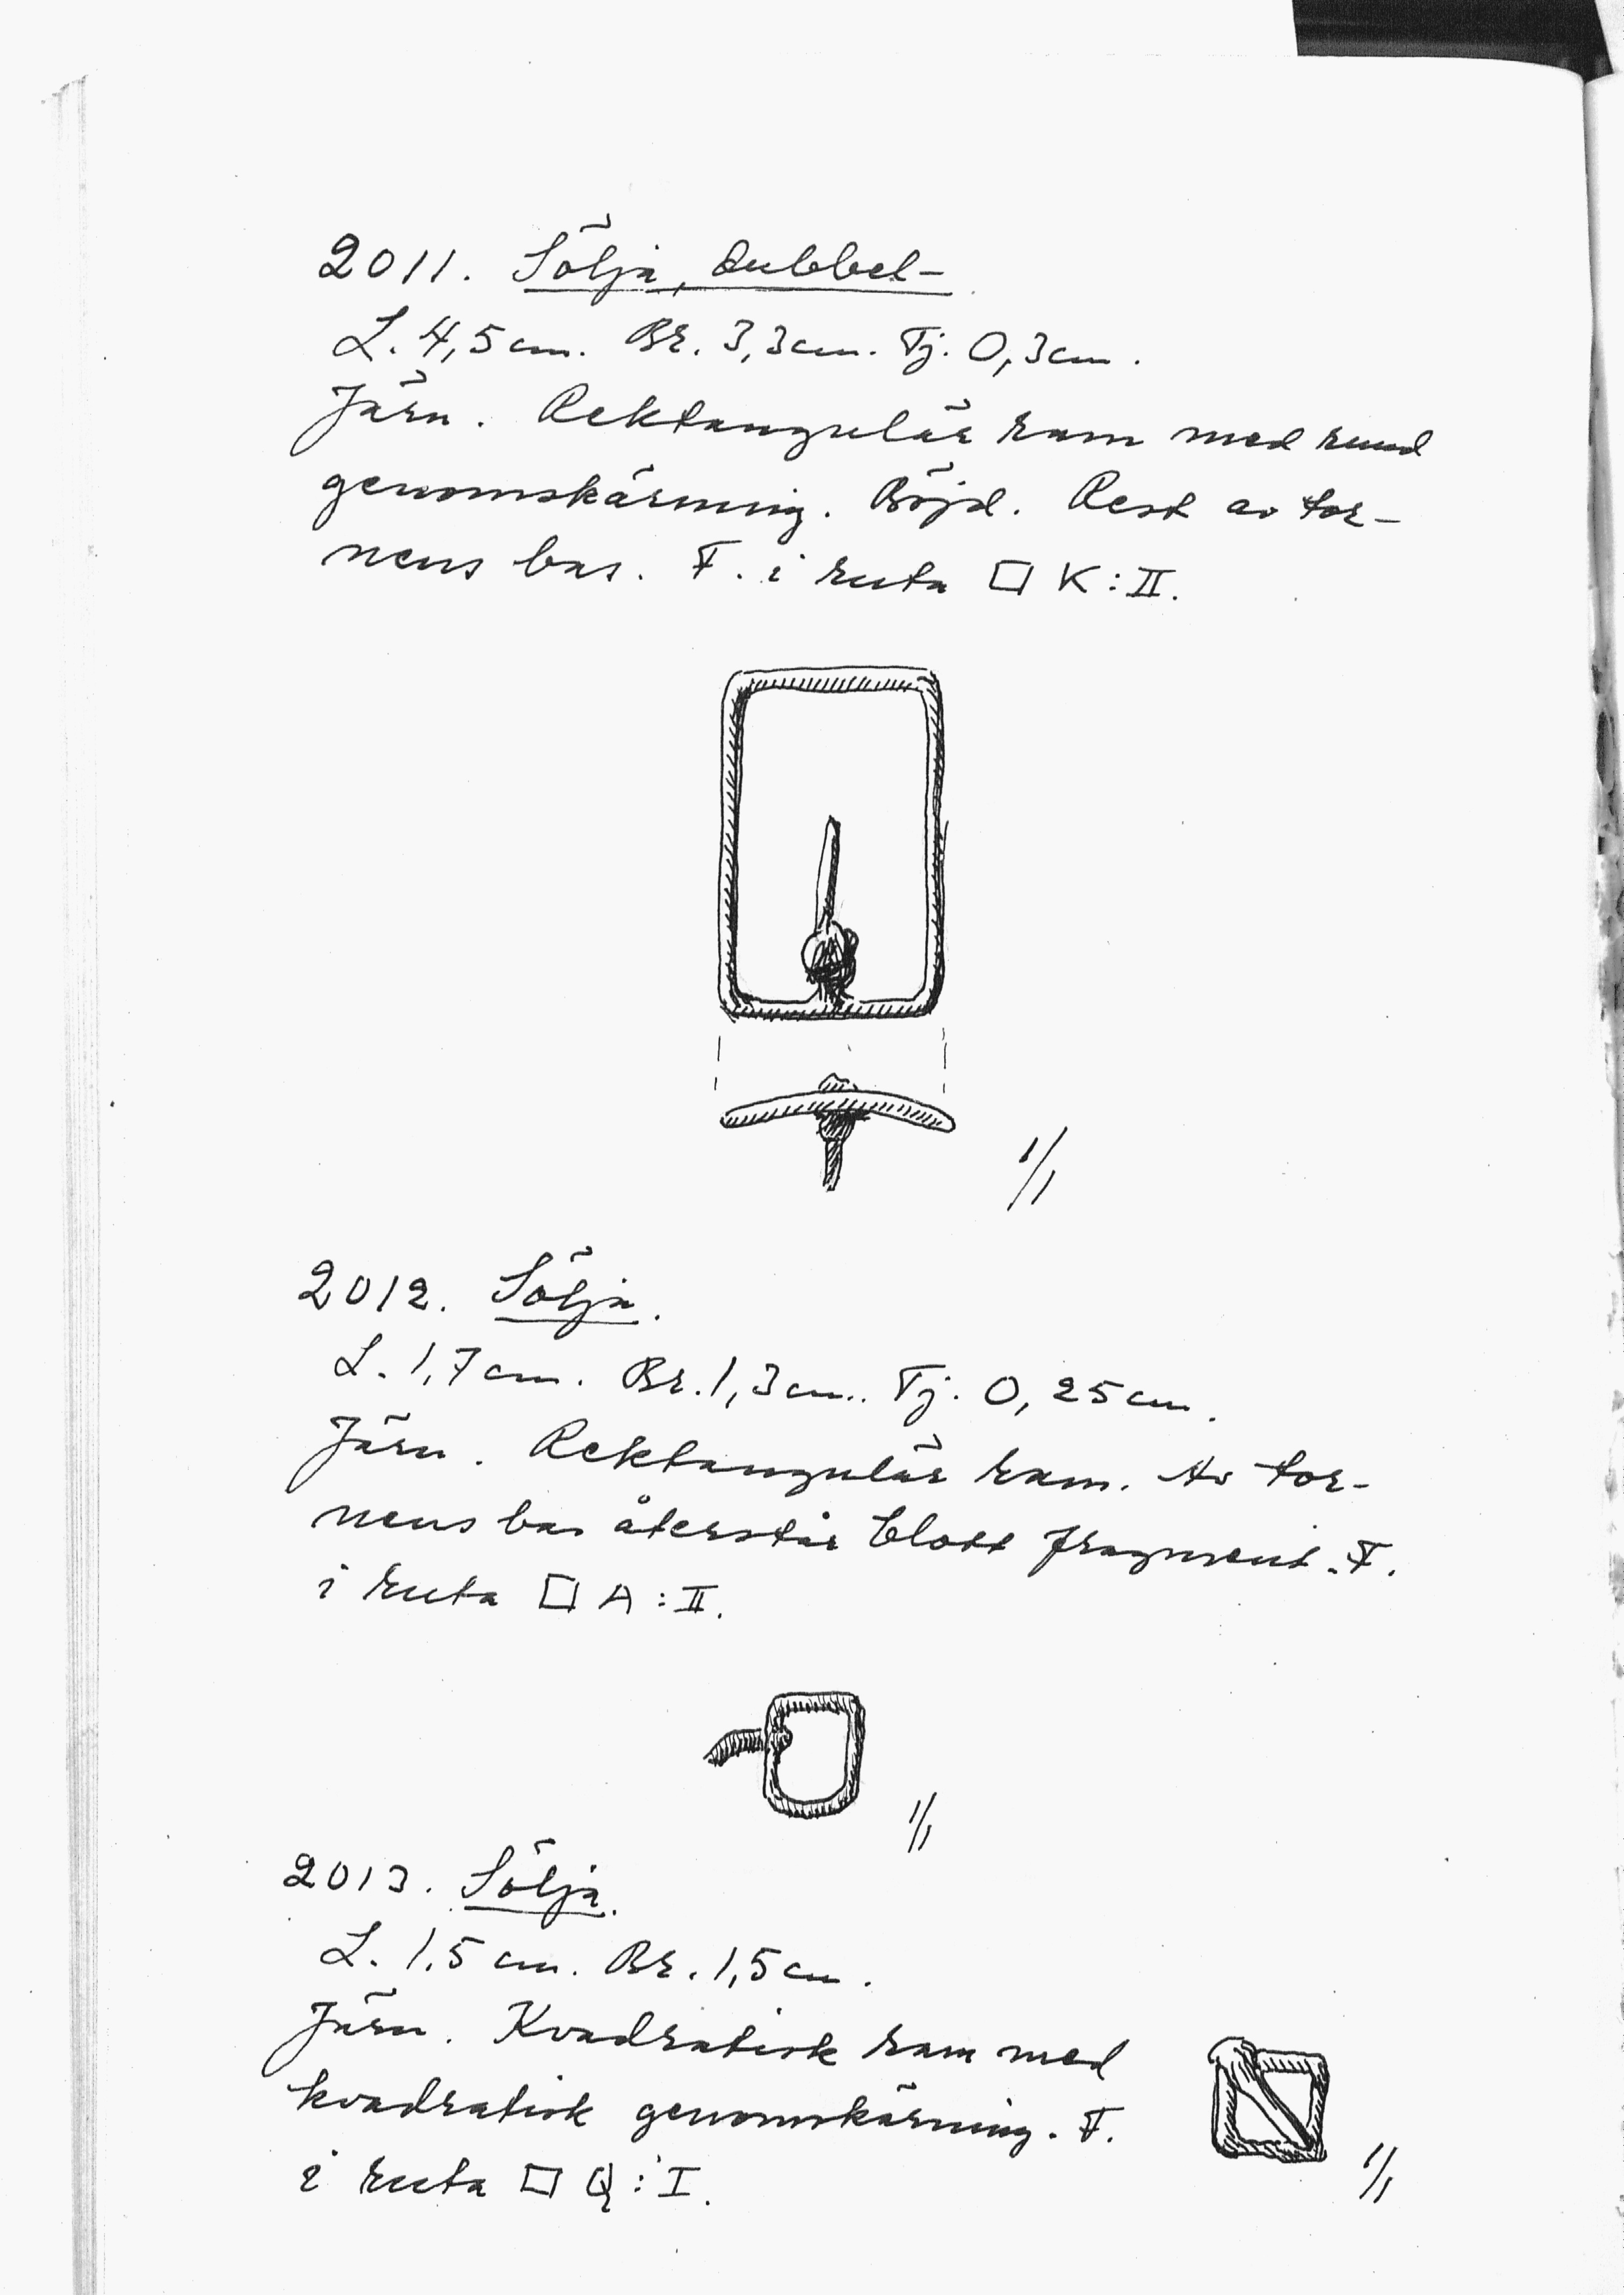 2011. Sölja, dubbel-
L. 4,5 cm. Br. 3,3 cm. Tj. 0,3 cm.
Järn. Rektangulär ram med rund
genomskärning. Böjd. Rest av tor-
nens bas. F. i ruta □ K:II.
1/1
2012. Sölja.
L. 1,7 cm. Br. 1,3 cm. Tj. 0,25 cm.
Järn. Rektangulär ram. Av tor-
nens bas återstår blott fragment. F.
i ruta □ A:II.
1/1
2013. Sölja.
L. 1,5 cm. Br. 1,5 cm.
Järn. Kvadratisk ram med
kvadratisk genomskärning. F.
i ruta □ Q:I.
1/1